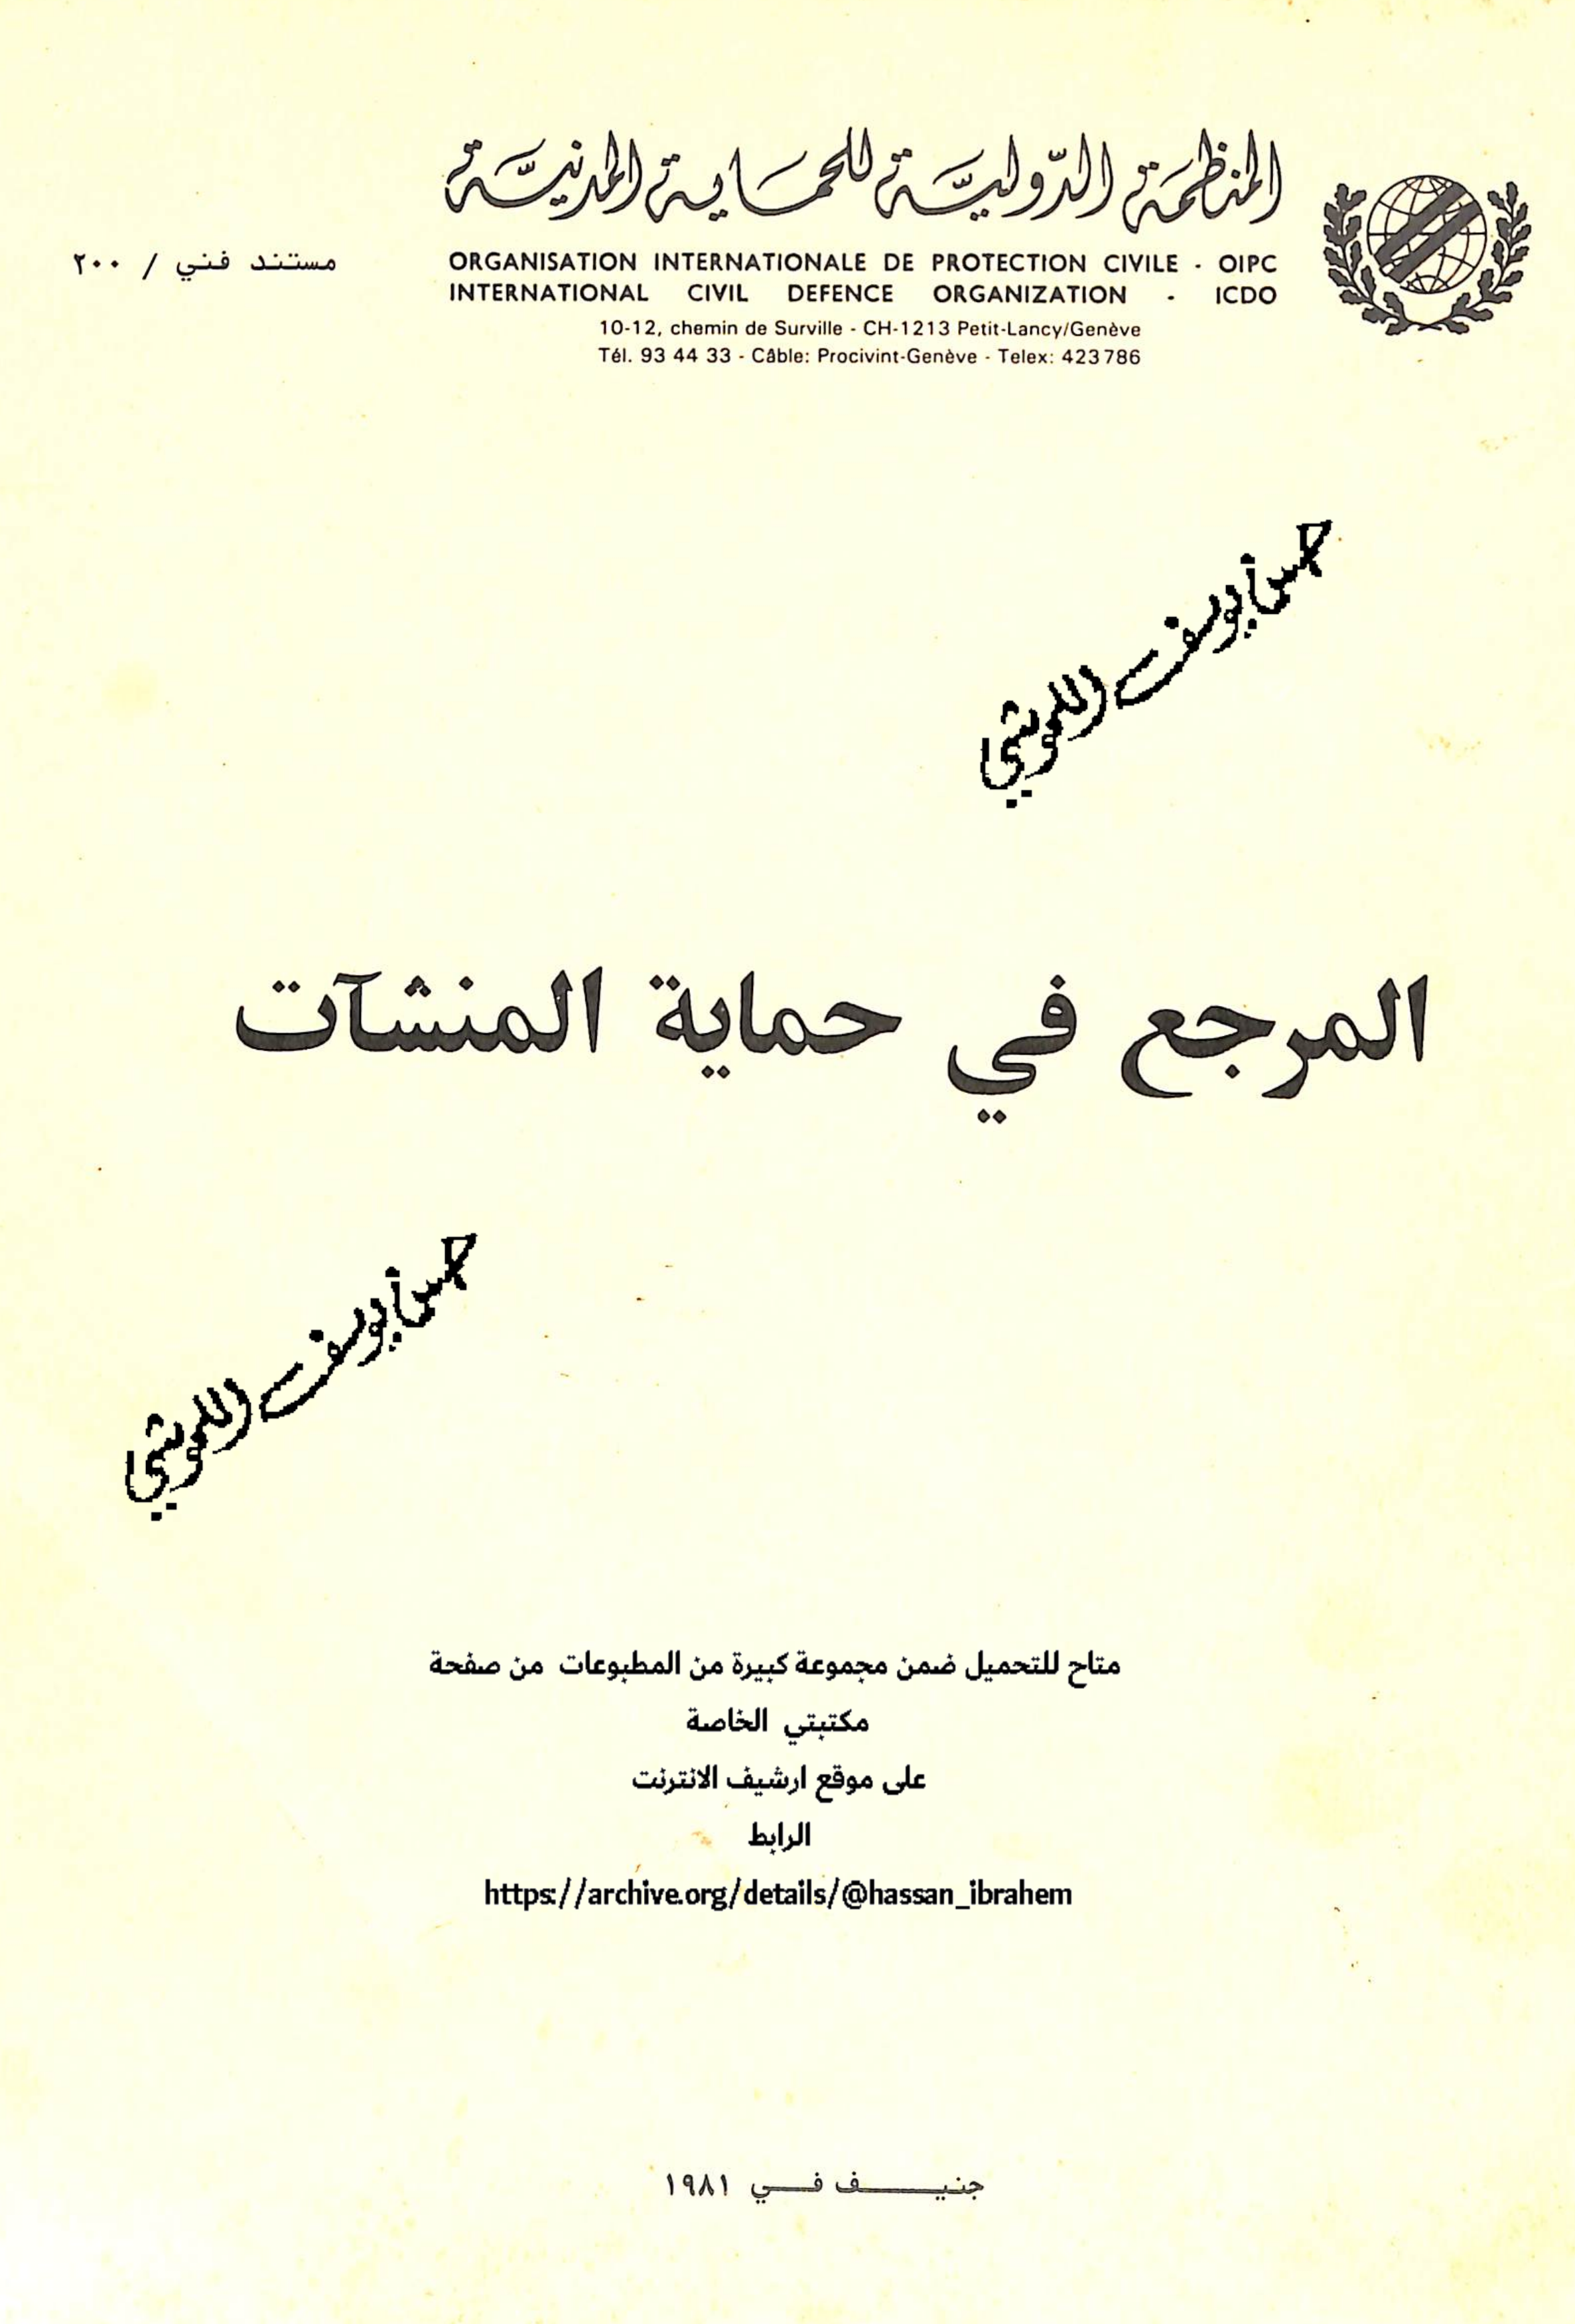 المنظمة الدولية للحماية المدنية
مستند فني / ٢٠٠
ORGANISATION INTERNATIONALE DE PROTECTION CIVILE - OIPC
INTERNATIONAL CIVIL DEFENCE ORGANIZATION - ICDO
10-12, chemin de Surville - CH-1213 Petit-Lancy/Genève
Tél. 93 44 33 - Câble: Procivint-Genève - Telex: 423786
المرجع في حماية المنشآت
متاح للتحميل ضمن مجموعة كبيرة من المطبوعات من صفحة
مكتبتي الخاصة
على موقع ارشيف الانترنت
الرابط
https://archive.org/details/@hassan_ibrahem
جنيف في ١٩٨١